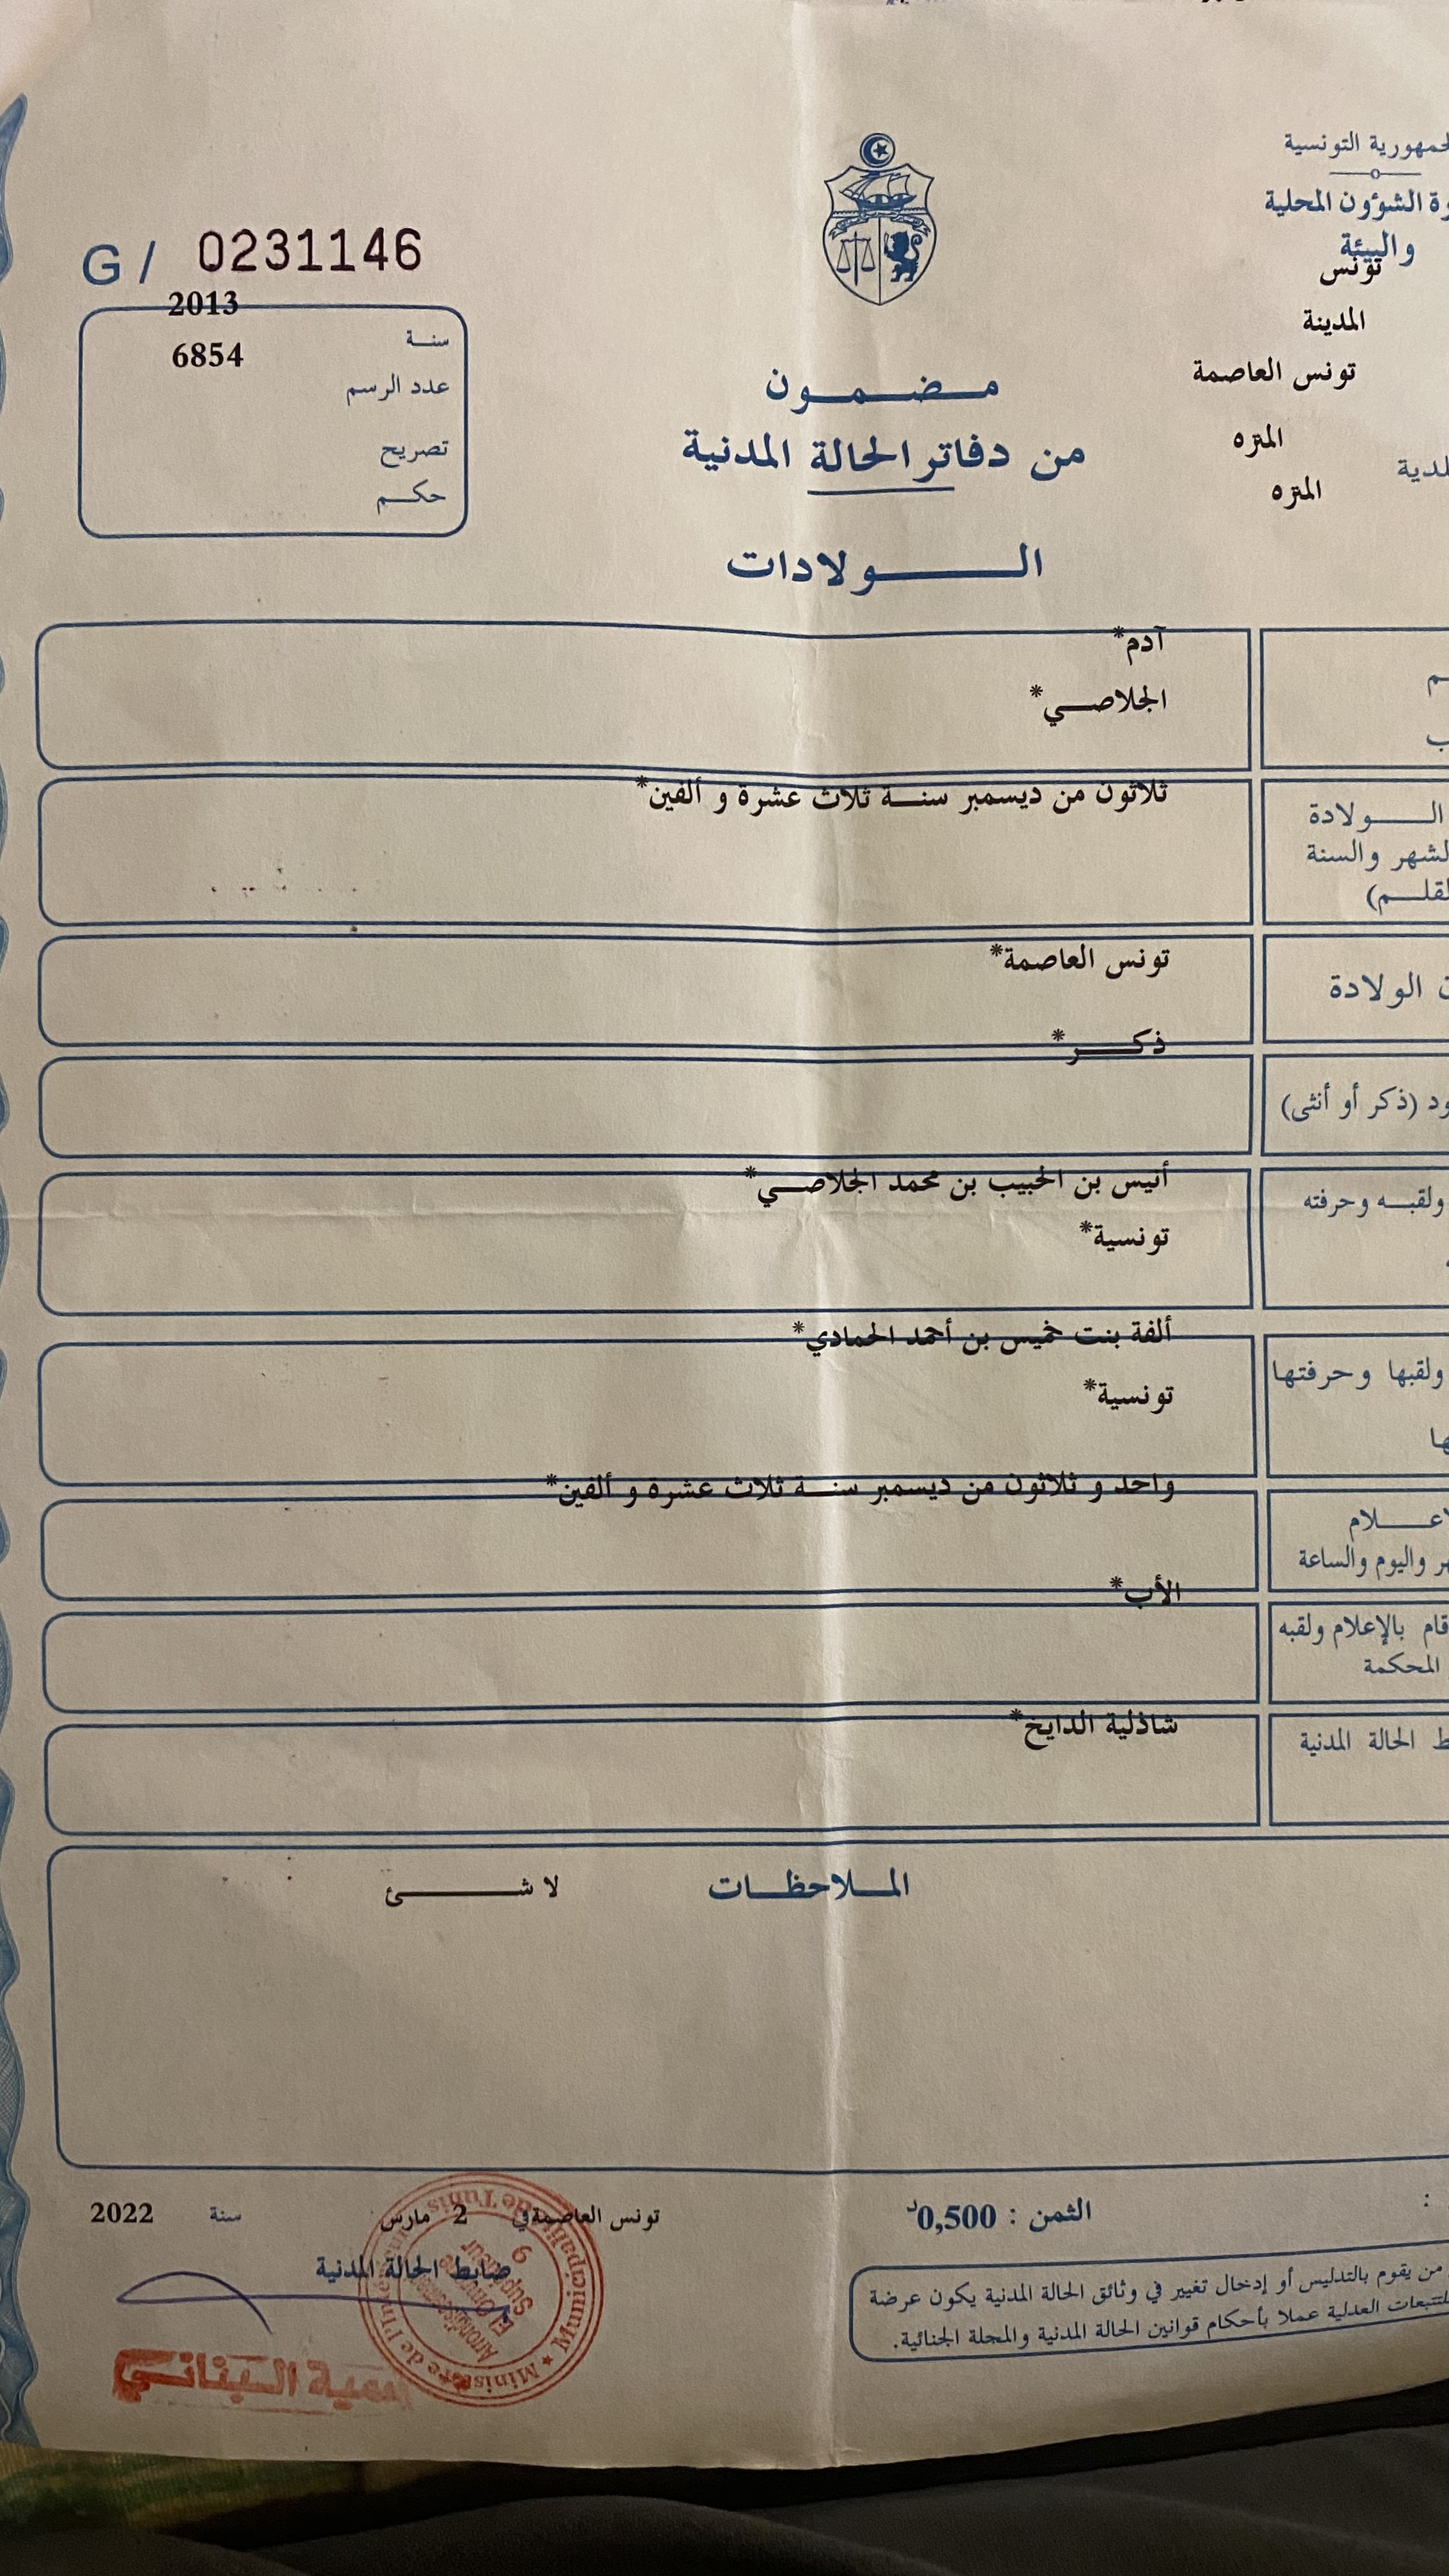 الجمهورية التونسية
الشؤون المحلية
والبيئة
تونس
المدينة
تونس العاصمة
المنزه
المنزه
G / 0231146
2013
سنة
6854
عدد الرسم
تصريح
حكم
مضمون
من دفاتر الحالة المدنية
الولادات
آدم*
الجلاصي*
ثلاثون من ديسمبر سنة ثلاث عشرة و ألفين*
الولادة
الشهر والسنة
تونس العاصمة*
الولادة
ذكر*
(ذكر أو أنثى)
أنيس بن الحبيب بن محمد الجلاصي*
ولقبه وحرفته
تونسية*
ألفة بنت خميس بن أحمد الحمادي*
ولقبها وحرفتها
تونسية*
واحد و ثلاثون من ديسمبر سنة ثلاث عشرة و ألفين*
واليوم والساعة
الأب*
قام بالإعلام ولقبه
المحكمة
شاذلية الدايخ*
الحالة المدنية
الملاحظات لا شئ
الثمن : 0,500د
تونس العاصمة في 2 مارس سنة 2022
ضابط الحالة المدنية
من يقوم بالتدليس أو إدخال تغيير في وثائق الحالة المدنية يكون عرضة
للتتبعات العدلية عملا بأحكام قوانين الحالة المدنية والمجلة الجنائية.
Municipalité de Tunis
★ Ministère de l'Intérieur
Arrondissement
El Omrane
Supérieur
9